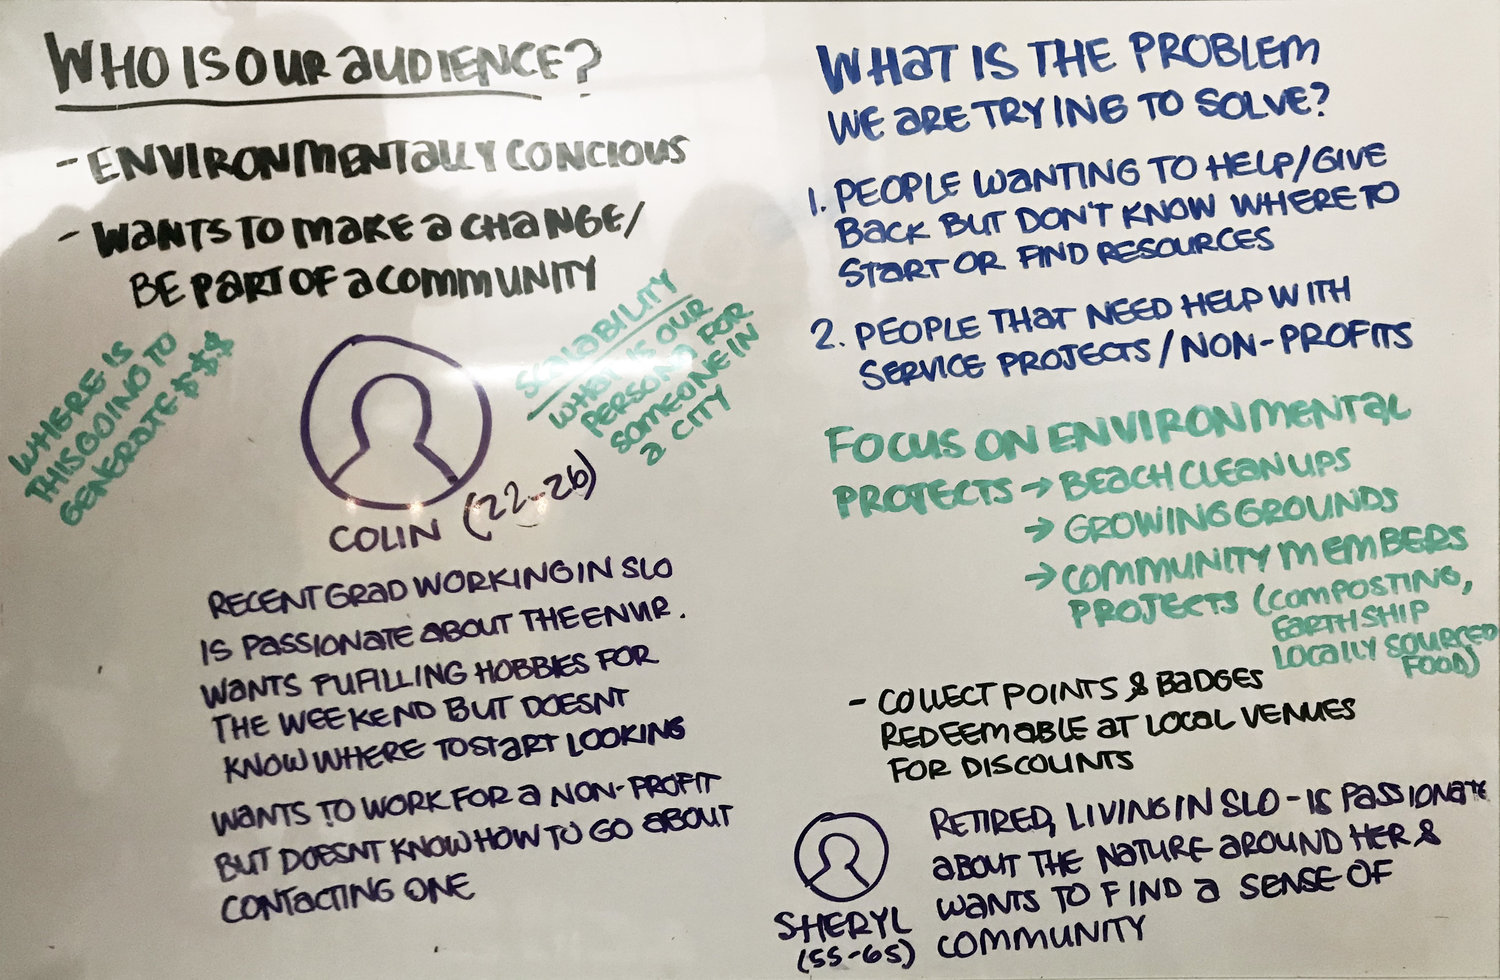 WHO IS OUR AUDIENCE?
- ENVIRONMENTALLY CONCIOUS
- WANTS TO MAKE A CHANGE/
BE PART OF A COMMUNITY
WHERE IS
THIS GOING TO
GENERATE $$$
SCALABILITY
WHAT IS OUR
PERSONA FOR
SOMEONE IN
A CITY
COLIN (22-26)
RECENT GRAD WORKING IN SLO
IS PASSIONATE ABOUT THE ENVR.
WANTS FUFILLING HOBBIES FOR
THE WEEKEND BUT DOESNT
KNOW WHERE TO START LOOKING
WANTS TO WORK FOR A NON-PROFIT
BUT DOESNT KNOW HOW TO GO ABOUT
CONTACTING ONE
WHAT IS THE PROBLEM
WE ARE TRYING TO SOLVE?
1. PEOPLE WANTING TO HELP/GIVE
BACK BUT DON'T KNOW WHERE TO
START OR FIND RESOURCES
2. PEOPLE THAT NEED HELP WITH
SERVICE PROJECTS/NON-PROFITS
FOCUS ON ENVIRONMENTAL
PROJECTS → BEACH CLEAN UPS
→ GROWING GROUNDS
→ COMMUNITY MEMBERS
PROJECTS (COMPOSTING,
EARTHSHIP
LOCALLY SOURCED
FOOD)
- COLLECT POINTS & BADGES
REDEEMABLE AT LOCAL VENUES
FOR DISCOUNTS
SHERYL
(55-65)
RETIRED, LIVING IN SLO - IS PASSIONATE
ABOUT THE NATURE AROUND HER &
WANTS TO FIND A SENSE OF
COMMUNITY